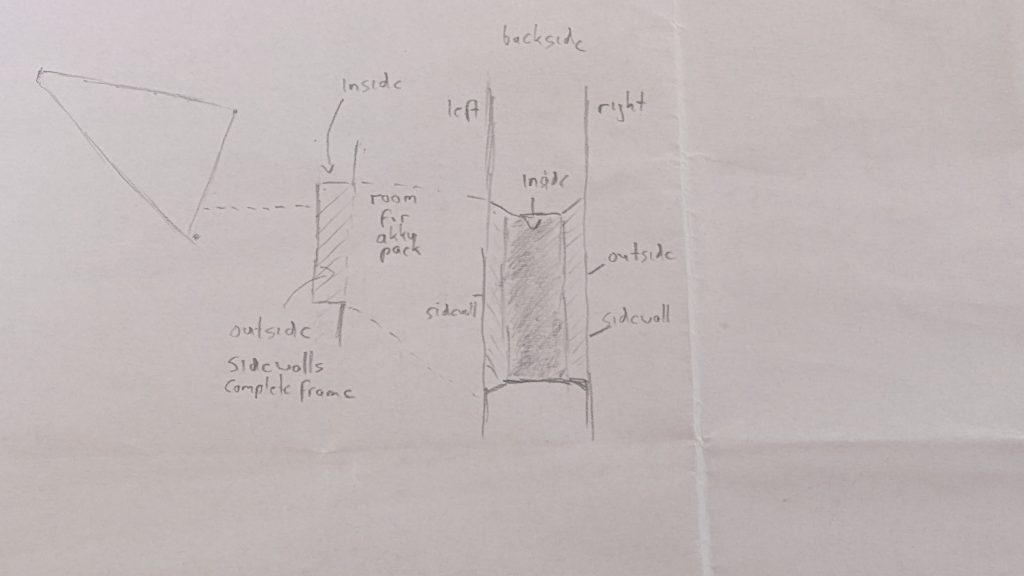 backside
inside
left
right
inside
room
for
akku
pack
outside
sidewall
sidewall
outside
sidewalls
complete frame